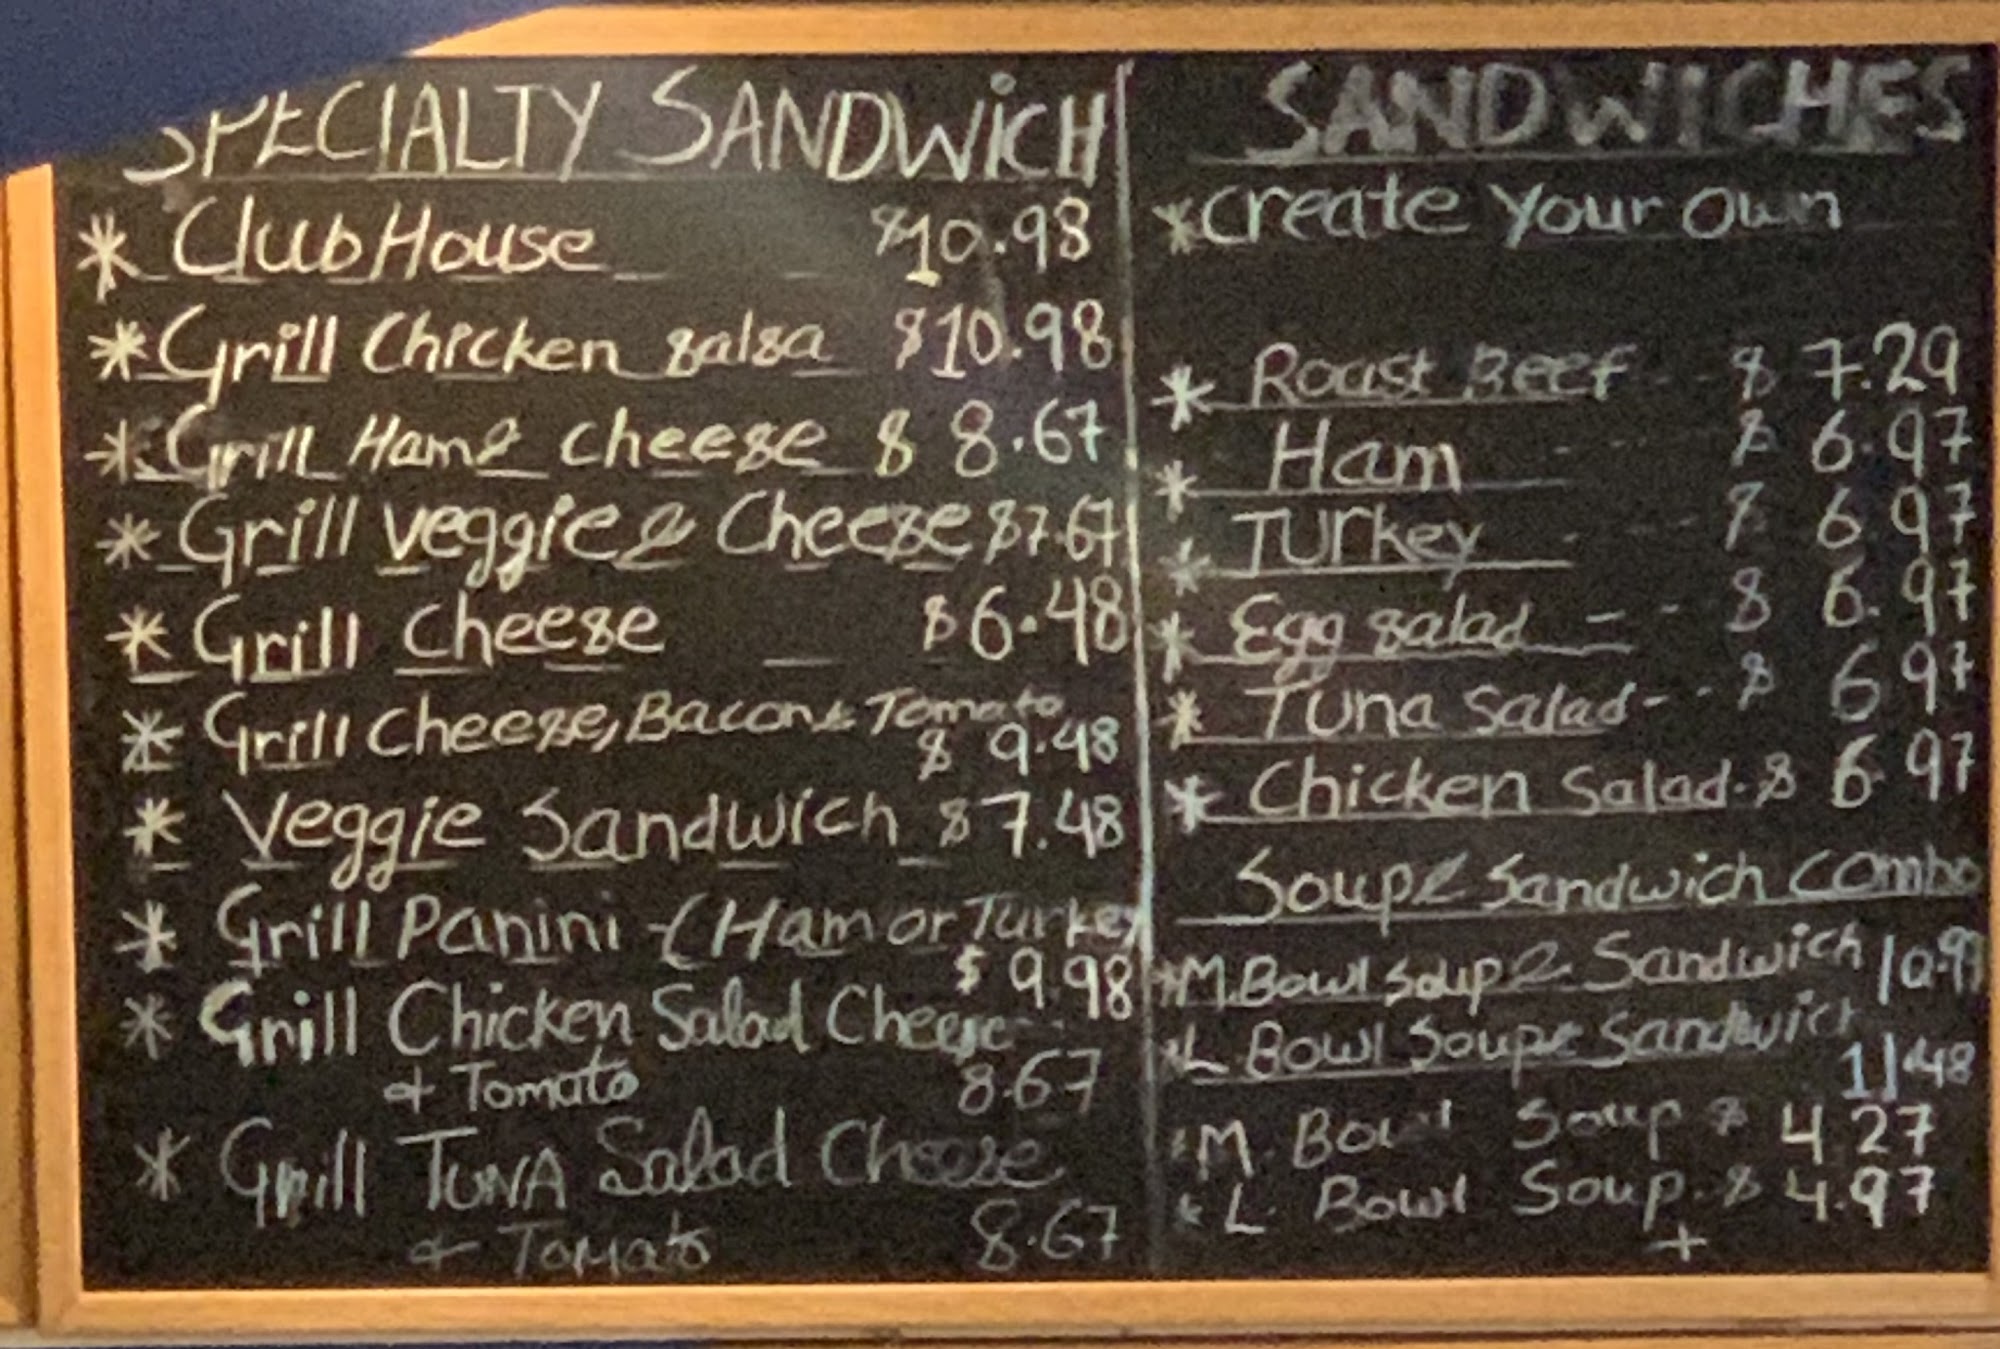 SPECIALTY SANDWICH
* ClubHouse $10.98
* Grill Chicken salsa $10.98
* Grill Ham & cheese $ 8.67
* Grill veggie & Cheese $7.67
* Grill cheese $6.48
* Grill cheese, Bacon & Tomato
$ 9.48
* Veggie Sandwich $7.48
* Grill Panini - (Ham or Turkey
$ 9.98
* Grill Chicken Salad Cheese
& Tomato 8.67
* Grill TUNA Salad Cheese
& Tomato 8.67
SANDWICHES
* Create Your Own
* Roast Beef - $ 7.29
* Ham - $ 6.97
* Turkey - $ 6.97
* Egg salad - - $ 6.97
* Tuna Salad - - $ 6 97
* Chicken Salad - $ 6 97
Soup & Sandwich combo
*M. Bowl Soup & Sandwich 10.97
*L. Bowl Soup & Sandwich
11.48
*M. Bowl Soup $ 4 27
*L. Bowl Soup. $ 4.97
+